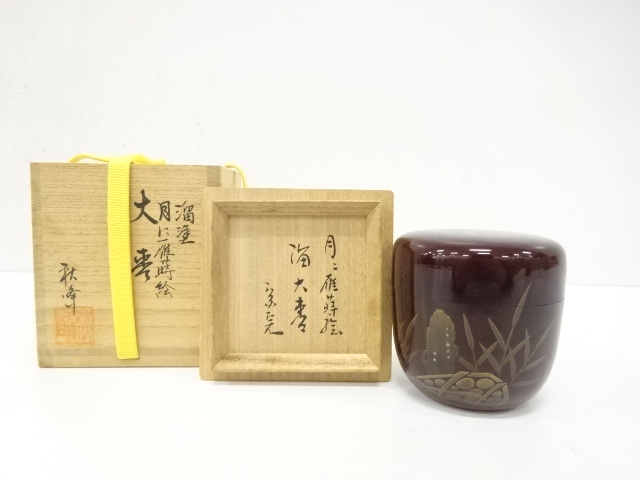 溜塗
月に雁蒔絵
大棗
秋峰
月ニ雁蒔絵
溜大棗